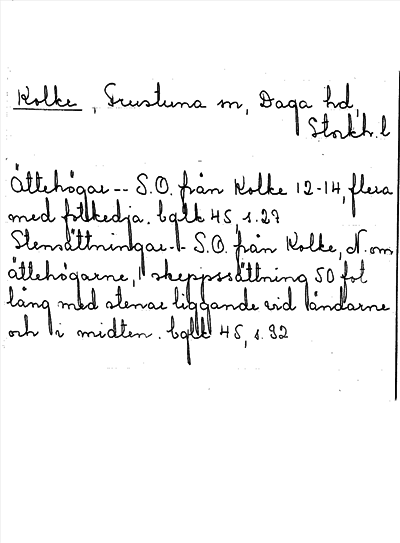 Kolke, Frustuna sn, Daga hd,
Stockh. l
Ättehögar -- S.O. från Kolke 12-14, flera
med fotkedja. bglk 45, s. 27
Stensättningar -- S.O. från Kolke, N. om
ättehögarne, 1 skeppssättning 50 fot
lång med stenar liggande vid ändarne
och i midten. bglk 45, s. 32